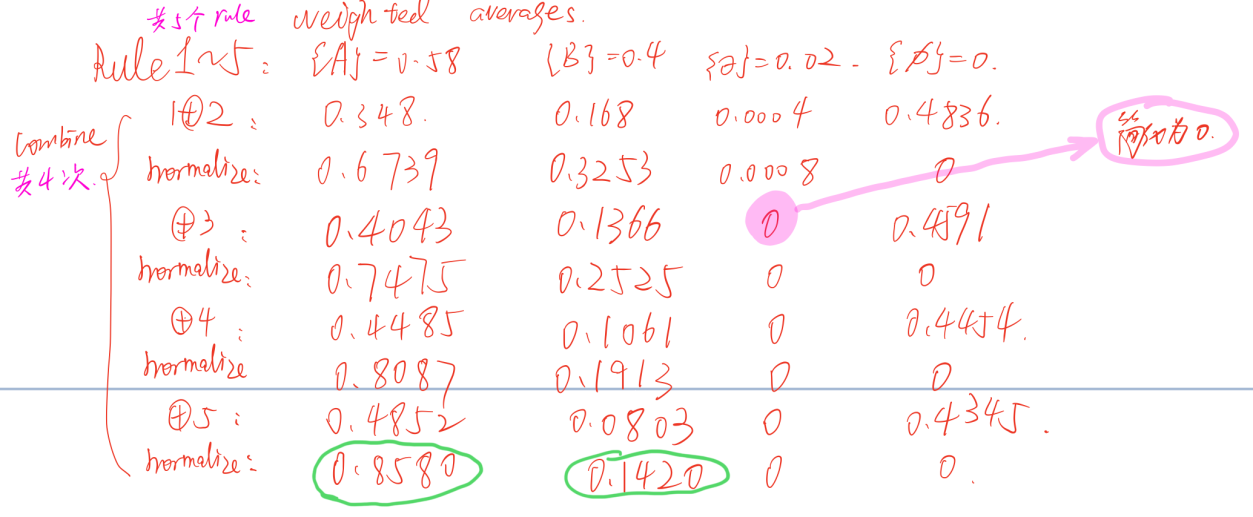 共5个rule weighted averages.
Rule1~5: {A}=0.58 {B}=0.4 {∂}=0.02. {∅}=0.
1⊕2: 0.348. 0.168 0.0004 0.4836.
combine
共4次.
简化为0.
normalize: 0.6739 0.3253 0.0008 0
⊕3: 0.4043 0.1366 0 0.4591
normalize: 0.7475 0.2525 0 0
⊕4: 0.4485 0.1061 0 0.4454.
normalize 0.8087 0.1913 0 0
⊕5: 0.4852 0.0803 0 0.4345.
normalize: 0.8580 0.1420 0 0.